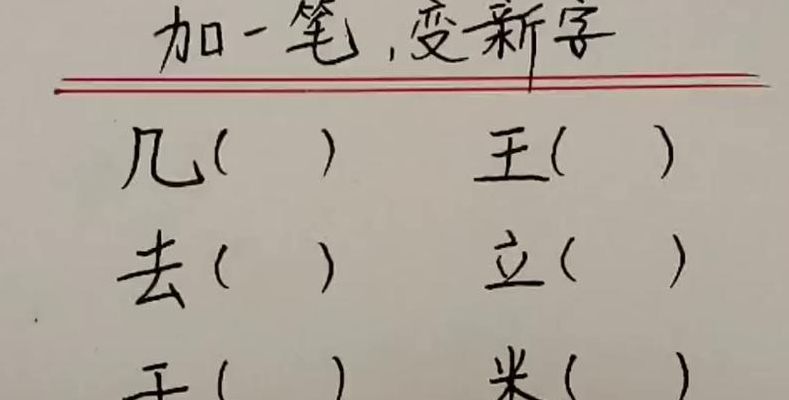 加一笔,变新字
几( ) 王( )
去( ) 立( )
( ) 米( )